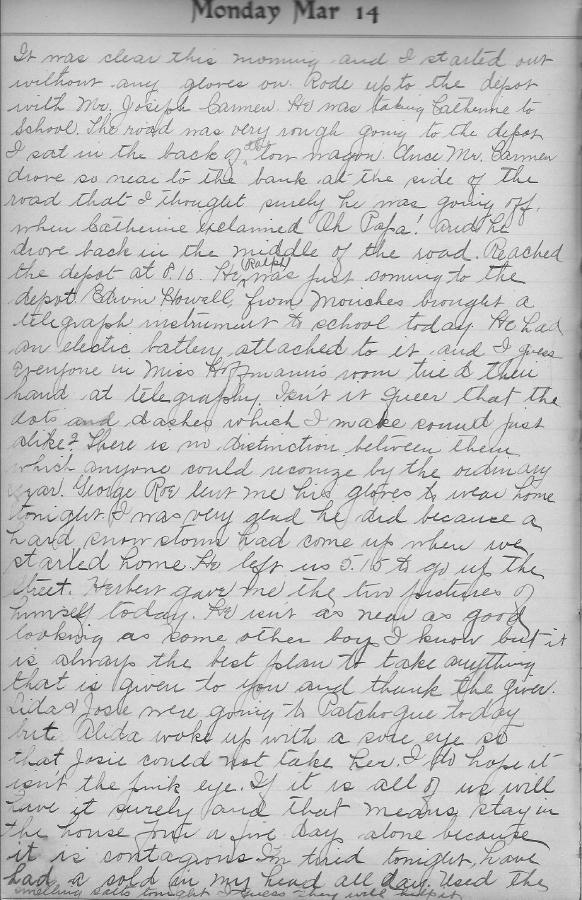 Monday Mar 14
It was clear this morning and I started out
without any gloves on. Rode up to the depot
with Mr. Joseph Carmen. He was taking Catherine to
School. The road was very rough going to the depot
I sat in the back of the low wagon. Once Mr. Carmen
drove so near to the bank at the side of the
road that I thought surely he was going off,
when Catherine exclaimed "Oh Papa! and he
drove back in the middle of the road. Reached
the depot at 8.10. He Ralph was just coming to the
depot. Edwin Howell, from Mouches brought a
telegraph instrument to school today. He had
an electric battery attached to it and I guess
everyone in Miss Hoffmann's room tried their
hand at telegraphy. Isn't it queer that the
dots and dashes which I make sound just
alike? There is no distinction between them
which anyone could reconize by the ordinary
ear. George Roe lent me his gloves to wear home
tonight. I was very glad he did because a
hard snow storm had come up when we
started home. He left us 5.15 to go up the
street. Herbert gave me the two pictures of
himself today. He isn't as near as good
looking as some other boys I know but it
is always the best plan to take anything
that is given to you and thank the giver.
Lida & Josie were going to Patchogue today
but Alida woke up with a sore eye so
that Josie could not take her. I do hope it
isn't the pink eye. If it is all of us will
have it surely and that means stay in
the house four or five days alone because
it is contagious. Im tired tonight, have
had a cold in my head all day. Used the
smelling salts tonight I guess they will help it